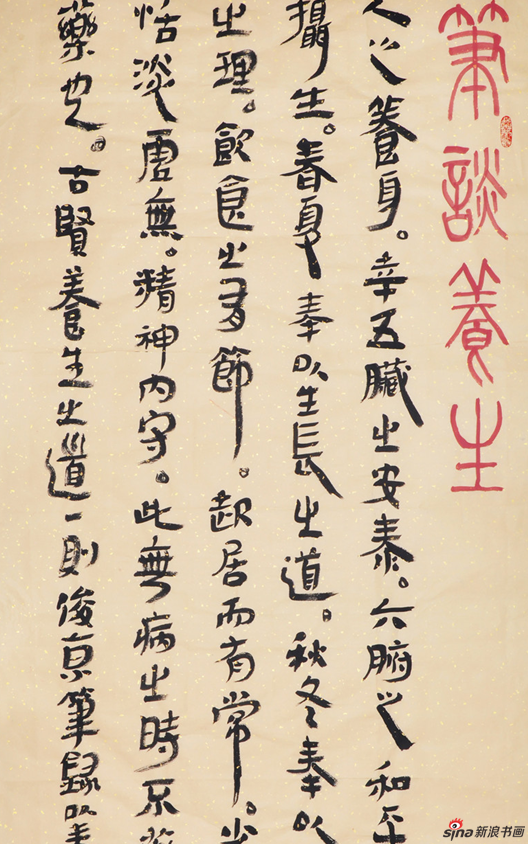 筆談養生
人之養身。幸五臟之安泰。六腑之和平
攝生。春夏奉以生長之道。秋冬奉以
之理。飲食之有節。起居而有常。
恬淡虛無。精神内守。此無病之時不
藥也。古賢養生之道一則俊京筆錄以
sina新浪书画